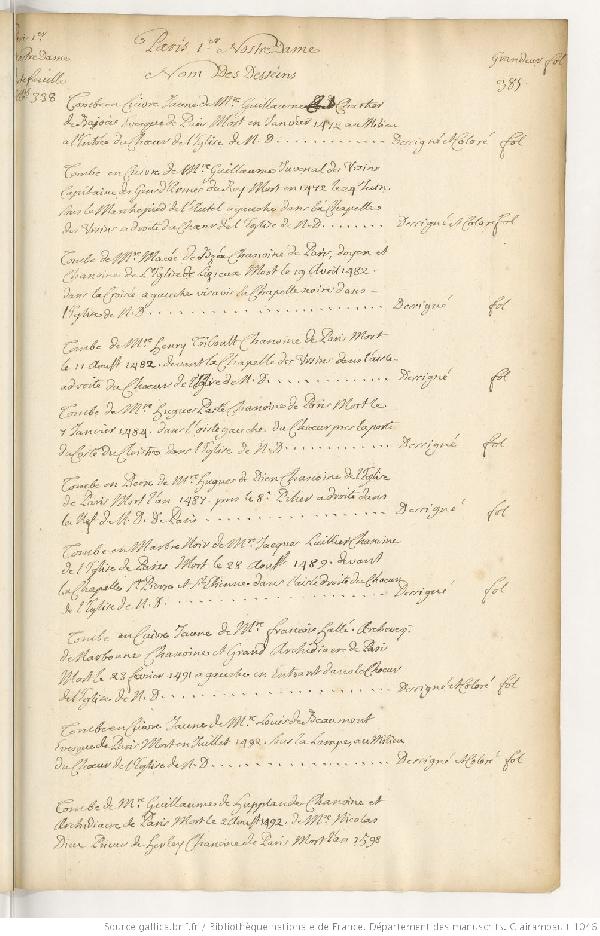 Paris 1er Nostre Dame
Nom Des Desseins
Grandeur fol
385
338
Tombe en Cuivre Jaune de Mre Guillaume Chartier
Evesque de Paris Mort en Janvier 1472 au Milieu
a l'Entrée du Chœur de l'Eglise de N.D. Dessigné Coloré fol
Tombe en Cuivre de Mre Guillaume Juvenal des Ursins
Capitaine des Gens d'Armes du Roy Mort en 1472 le 24 Juin.
sur le Marchepied de l'Autel a gauche dans la Chapelle
des Ursins a droite du Chœur de l'Eglise de N.D. Dessigné et Coloré fol
Tombe de Mre Macée de Chanoine de Paris, doyen et
Chanoine de L'Eglise de Lizieux Mort le 19 Avril 1482.
dans la Croisée a gauche vis a vis la Chapelle noire dans
l'Eglise de N.D. Dessigné fol
Tombe de Mre Henry Tiboult Chanoine de Paris Mort
le 11 Aoust 1482. devant la Chapelle des Ursins dans l'aisle
a droite du Chœur de l'Eglise de N.D. Dessigné fol
Tombe de Mre Hugues Chanoine de Paris Mort le
7 Janvier 1484. dans l'aisle gauche du Chœur pres la porte
du Cloistre dans l'Eglise de N.D. Dessigné fol
Tombe en Pierre de Mre Hugues de Dicy Chanoine de l'Eglise
de Paris Mort l'an 1487. pres le 8e Pilier a droite dans
la Nef de N.D. de Paris Dessigné fol
Tombe en Marbre Noir de Mre Jacques Luillier Chanoine
de l'Eglise de Paris Mort le 28 Aoust 1489. devant
la Chapelle St Pierre et St Etienne dans l'aisle droite du Chœur
de l'Eglise de N.D. Dessigné fol
Tombe en Cuivre Jaune de Mre françois hallé Archevêq.
de Narbonne Chanoine et Grand Archidiacre de Paris
Mort le 23 fevrier 1491 a gauche en Entrant dans le Chœur
de l'Eglise de N.D. Dessigné et Coloré fol
Tombe en Cuivre Jaune de Mre Louis de Beaumont
Evesque de Paris Mort en Juillet 1492. sur la Lampe, au Milieu
du Chœur de l'Eglise de N.D. Dessigné et Coloré fol
Tombe de Mre Guillaume de Chanoine et
Archidiacre de Paris Mort le 2 Aoust 1492. de Mre Nicolas
Dieu Prieur de Chanoine de Paris Mort l'an 1598
Source gallica.bnf.fr / Bibliothèque nationale de France. Département des manuscrits. Clairambault 1046